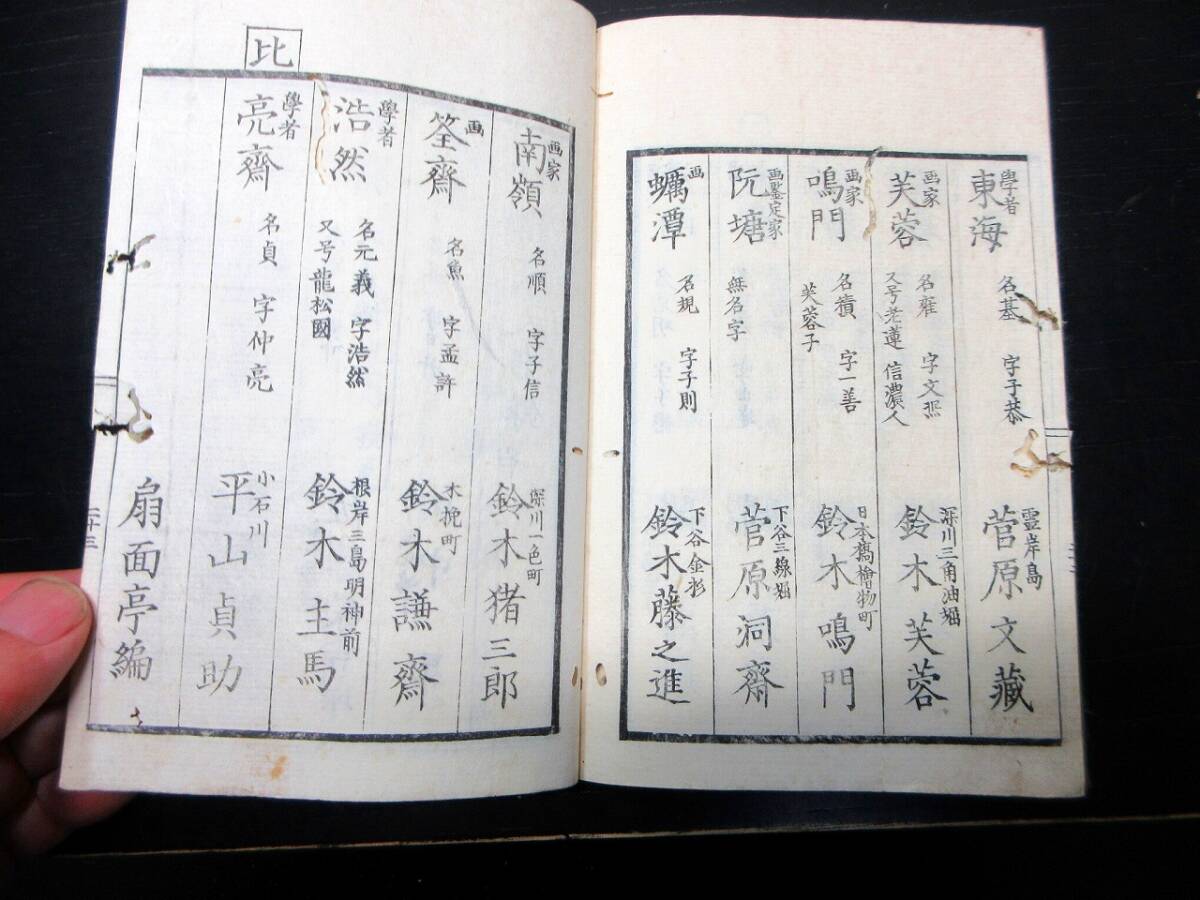 學者
東海 名基 字子恭 靈岸島 菅原文藏
画家
芙蓉 名雍 字文熙 又号老蓮 信濃人 深川三角油堀 鈴木芙蓉
画家
鳴門 名積 字一善 芙蓉子 日本橋檜物町 鈴木鳴門
画鑒定家
阮塘 無名字 下谷三線堀 菅原洞齋
画
蠣潭 名規 字子則 下谷金杉 鈴木藤之進
画家
南嶺 名順 字子信 深川一色町 鈴木猪三郎
画
筌齋 名魚 字孟許 木挽町 鈴木謙齋
學者
浩然 名元義 字浩然 又号龍松國 根岸三島明神前 鈴木主馬
比
學者
亮齋 名貞 字仲亮 小石川 平山貞助
扇面亭編